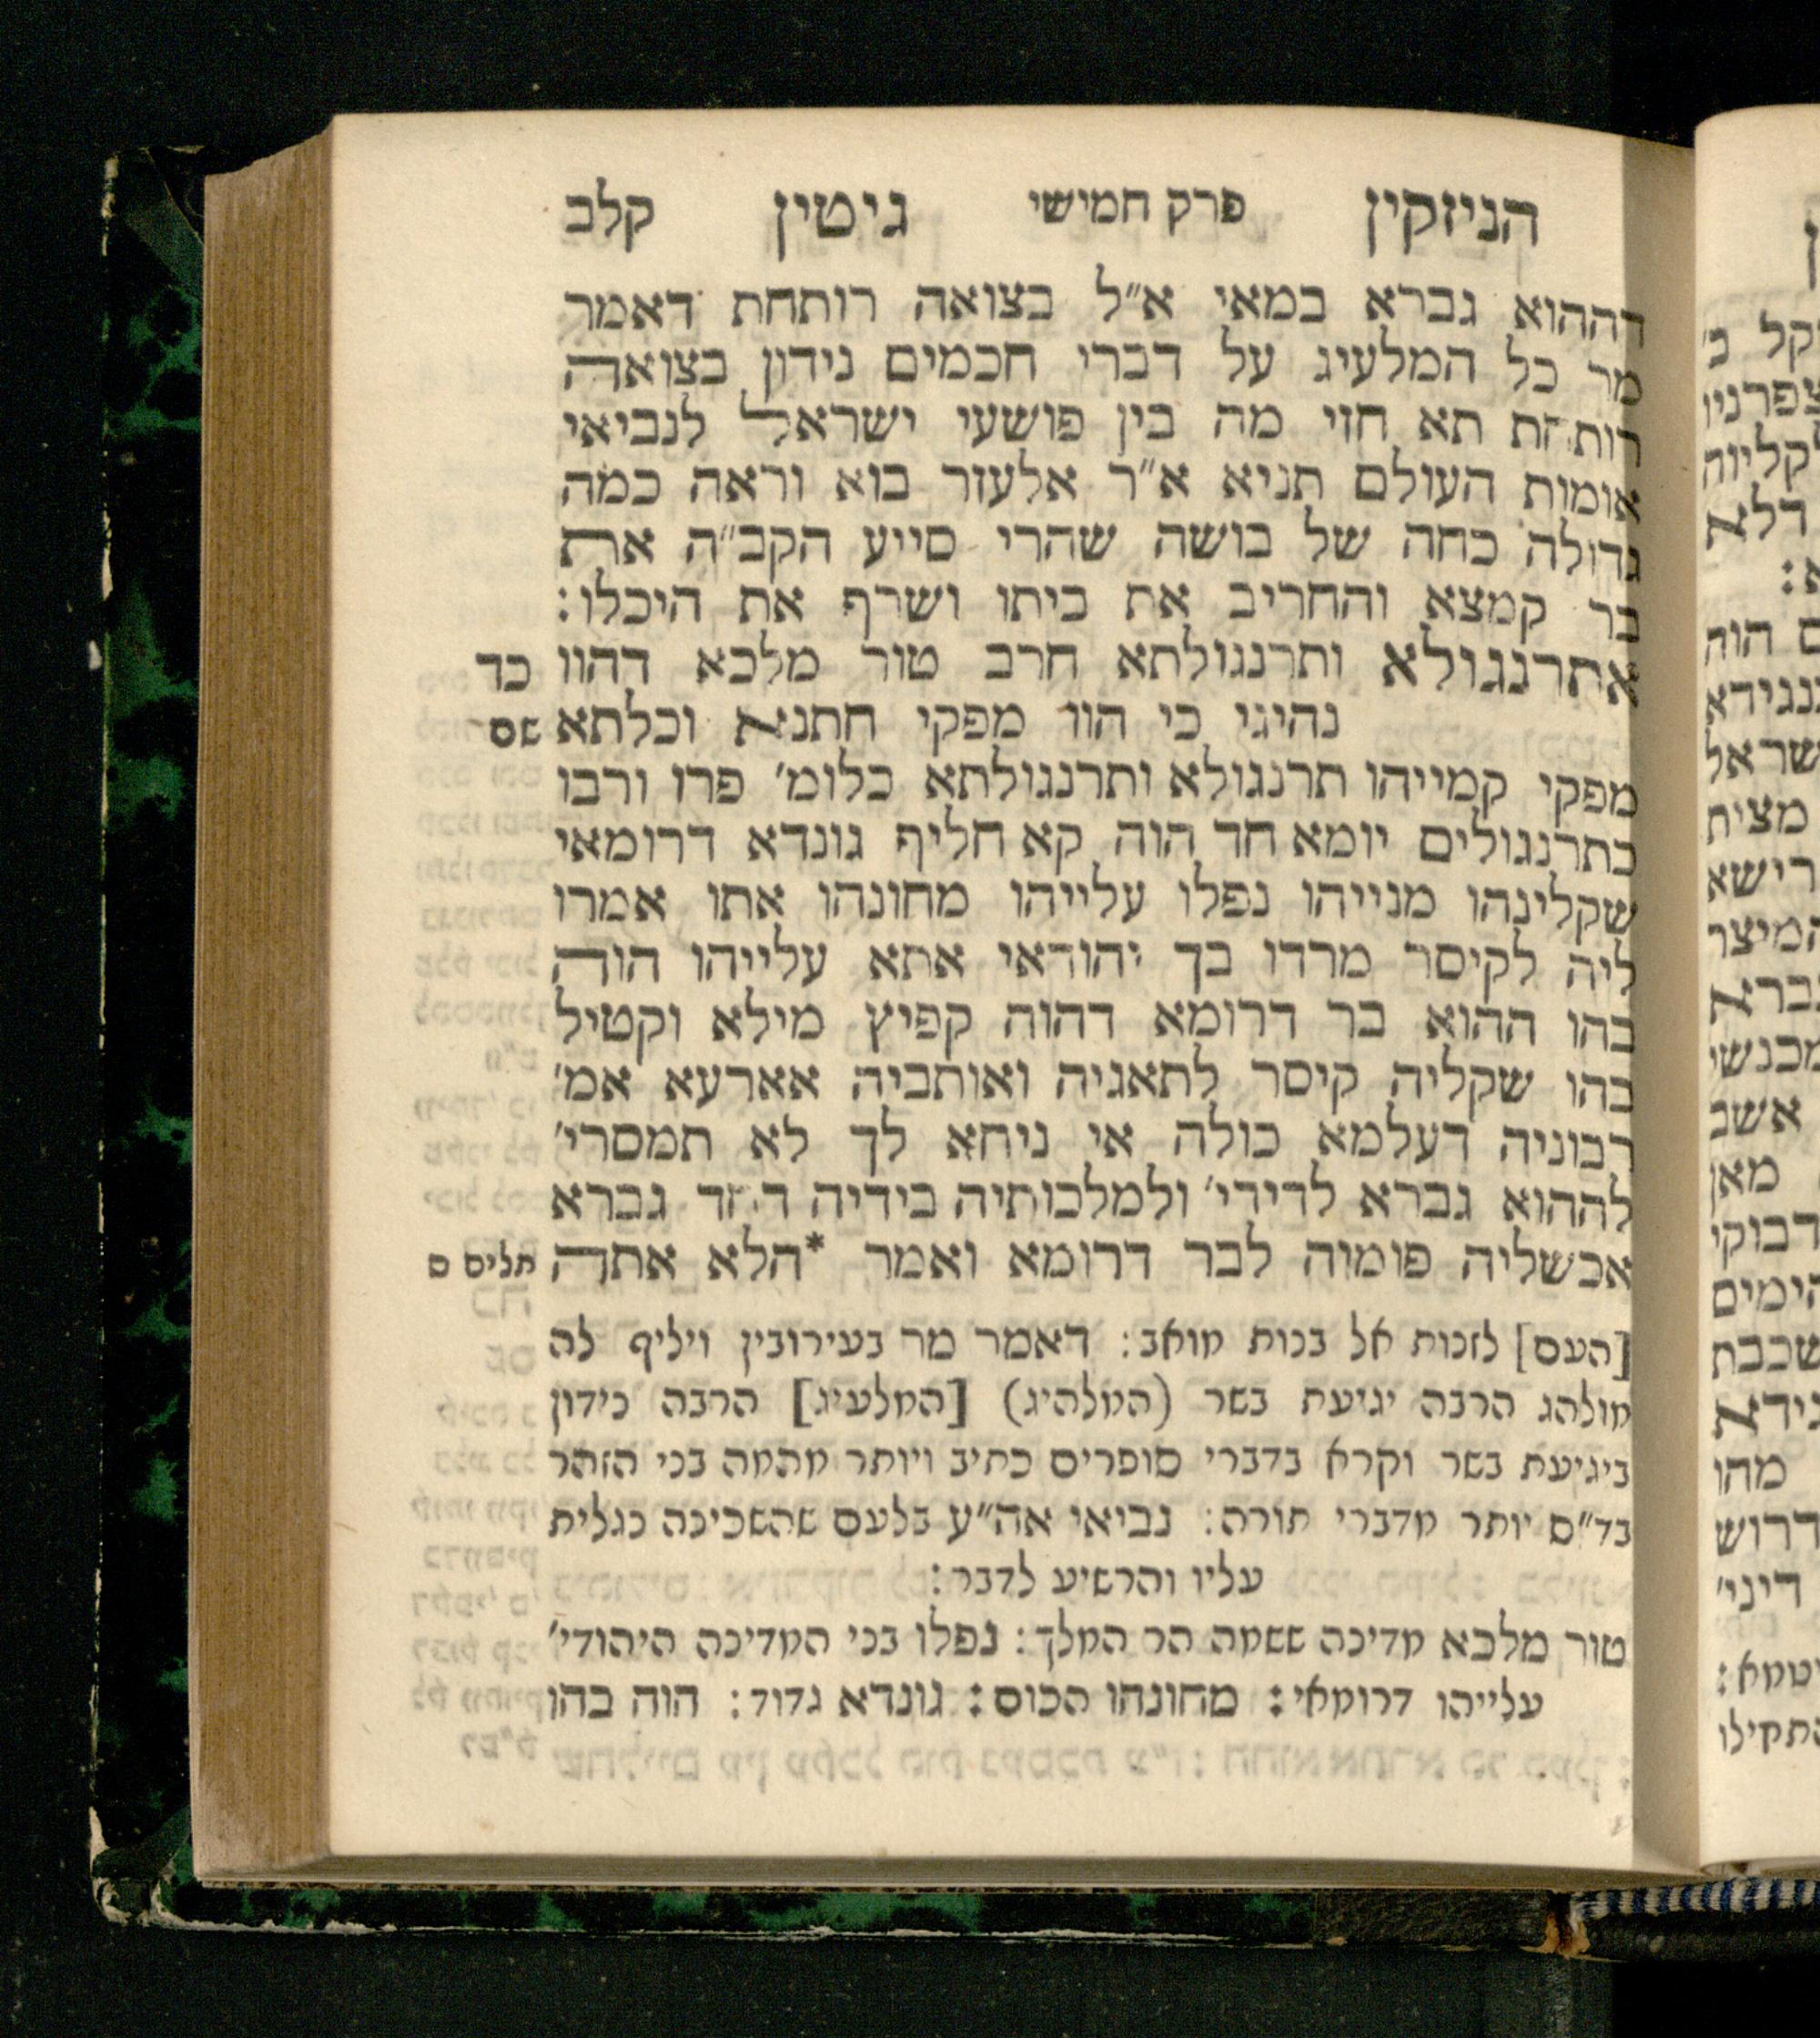 הניזקין פרק חמישי גיטין קלב
דההוא גברא במאי א״ל בצואה רותחת דאמר
מר כל המלעיג על דברי חכמים נידון בצואה
רותחת תא חזי מה בין פושעי ישראל לנביאי
אומות העולם תניא א״ר אלעזר בוא וראה כמה
גדולה כחה של בושה שהרי סייע הקב״ה את
בר קמצא והחריב את ביתו ושרף את היכלו:
אתרנגולא ותרנגולתא חרב טור מלכא דהוו כד
נהיגי כי הוו מפקי חתנא וכלתא שם
מפקי קמייהו תרנגולא ותרנגולתא כלומ׳ פרו ורבו
כתרנגולים יומא חד הוה קא חליף גונדא דרומאי
שקלינהו מנייהו נפלו עלייהו מחונהו אתו אמרו
ליה לקיסר מרדו בך יהודאי אתא עלייהו הוה
בהו ההוא בר דרומא דהוה קפיץ מילא וקטיל
בהו שקליה קיסר לתאגיה ואותביה אארעא אמ׳
רבוניה דעלמא כולה אי ניחא לך לא תמסרי׳
לההוא גברא לדידי׳ ולמלכותיה בידיה דחד גברא
אכשליה פומוה לבר דרומא ואמר *הלא אתה תליס ס
[העם] לזנות אל בנות מואב: דאמר מר בעירובין ויליף לה
מולהג הרבה יגיעת בשר (המלהיג) [המלעיג] הרבה נידון
ביגיעת בשר וקרא בדברי סופרים כתיב ויותר מהמה בני הזהר
בד״ס יותר מדברי תורה: נביאי אה״ע בלעם שהשכינה נגלית
עליו והרשיע לדבר:
טור מלכא מדינה ששמה הר המלך: נפלו בני המדינה היהודי׳
עלייהו דרומאי: מחונהו הכום: גונדא גדוד: הוה בהו